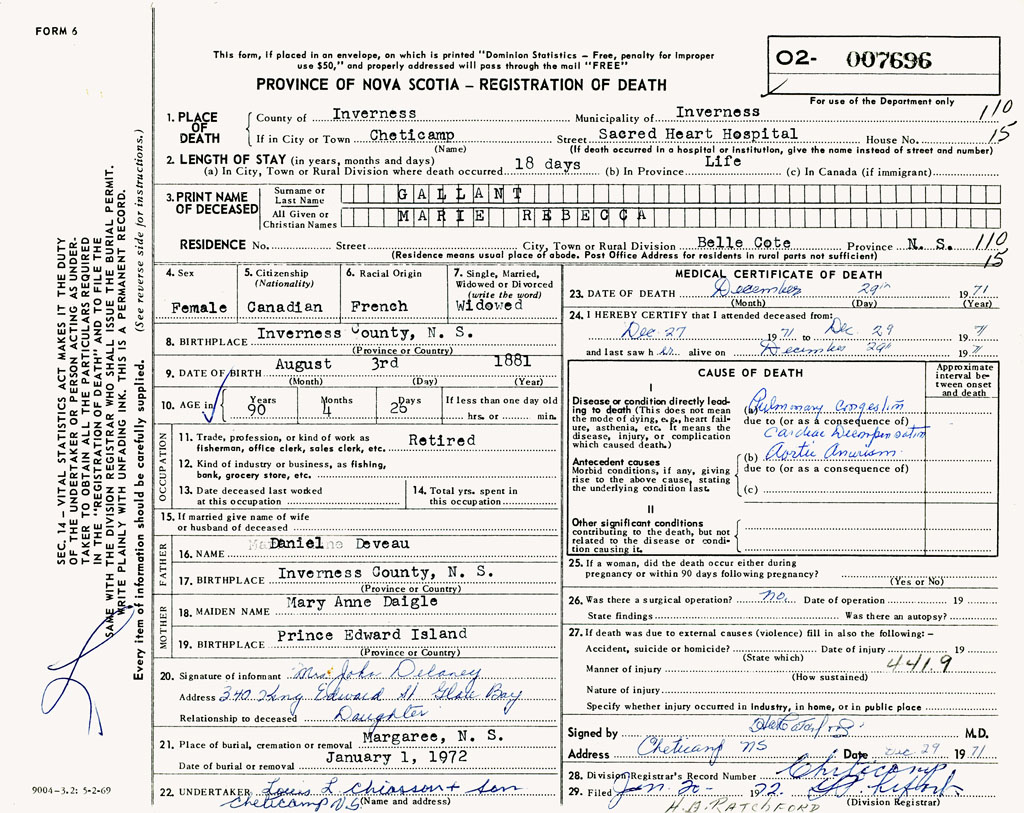 FORM 6
This form, if placed in an envelope, on which is printed "Dominion Statistics – Free, penalty for improper
use $50," and properly addressed will pass through the mail "FREE"
O2- 007696
PROVINCE OF NOVA SCOTIA – REGISTRATION OF DEATH
For use of the Department only
1. PLACE OF DEATH
County of Inverness Municipality of Inverness 110
If in City or Town Cheticamp Street Sacred Heart Hospital House No. 15
(Name) (If death occurred in a hospital or institution, give the name instead of street and number)
2. LENGTH OF STAY (in years, months and days)
(a) In City, Town or Rural Division where death occurred 18 days (b) In Province Life (c) In Canada (if immigrant)
3. PRINT NAME OF DECEASED
Surname or Last Name GALLANT
All Given or Christian Names MARIE REBECCA
RESIDENCE No. Street City, Town or Rural Division Belle Cote Province N. S. 110
(Residence means usual place of abode. Post Office Address for residents in rural parts not sufficient) 15
4. Sex
Female
5. Citizenship
(Nationality)
Canadian
6. Racial Origin
French
7. Single, Married,
Widowed or Divorced
(write the word)
Widowed
8. BIRTHPLACE Inverness County, N. S.
(Province or Country)
9. DATE OF BIRTH August 3rd 1881
(Month) (Day) (Year)
10. AGE in
Years 90
Months 4
Days 26
If less than one day old
hrs. or min.
OCCUPATION
11. Trade, profession, or kind of work as
fisherman, office clerk, sales clerk, etc. Retired
12. Kind of industry or business, as fishing,
bank, grocery store, etc.
13. Date deceased last worked
at this occupation
14. Total yrs. spent in
this occupation
15. If married give name of wife
or husband of deceased
FATHER
16. NAME Daniel Deveau
17. BIRTHPLACE Inverness County, N. S.
(Province or Country)
MOTHER
18. MAIDEN NAME Mary Anne Daigle
19. BIRTHPLACE Prince Edward Island
(Province or Country)
20. Signature of informant Mrs John Delaney
Address 340 King Edward St Glace Bay
Relationship to deceased Daughter
21. Place of burial, cremation or removal Margaree, N. S.
Date of burial or removal January 1, 1972
22. UNDERTAKER Louis L Chiasson + Son
Cheticamp N.S. (Name and address)
MEDICAL CERTIFICATE OF DEATH
23. DATE OF DEATH December 29th 1971
(Month) (Day) (Year)
24. I HEREBY CERTIFY that I attended deceased from:
Dec. 27 1971 to Dec. 29 1971
and last saw her alive on December 29th 1971
CAUSE OF DEATH
Approximate
interval be-
tween onset
and death
I
Disease or condition directly lead-
ing to death (This does not mean
the mode of dying, e.g., heart fail-
ure, asthenia, etc. It means the
disease, injury, or complication
which caused death.)
(a) Pulmonary congestion
due to (or as a consequence of)
Cardiac Decompensation
Antecedent causes
Morbid conditions, if any, giving
rise to the above cause, stating
the underlying condition last.
(b) Aortic Anurism
due to (or as a consequence of)
(c)
II
Other significant conditions
contributing to the death, but not
related to the disease or condi-
tion causing it.
25. If a woman, did the death occur either during
pregnancy or within 90 days following pregnancy?
(Yes or No)
26. Was there a surgical operation? no. Date of operation 19
State findings Was there an autopsy?
27. If death was due to external causes (violence) fill in also the following: –
Accident, suicide or homicide? Date of injury 19
(State which)
Manner of injury 441.9
(How sustained)
Nature of injury
Specify whether injury occurred in industry, in home, or in public place
Signed by M.D.
Address Cheticamp NS Date Dec 29 1971
28. Division Registrar's Record Number Cheticamp
29. Filed Jan. 20 - 1972.
(Division Registrar)
H.A. RATCHFORD
9004–3.2: 5-2-69
SEC. 14 – VITAL STATISTICS ACT MAKES IT THE DUTY
OF THE UNDERTAKER OR PERSON ACTING AS UNDER-
TAKER TO OBTAIN ALL THE PARTICULARS REQUIRED
IN THE "REGISTRATION OF DEATH" AND TO FILE THE
SAME WITH THE DIVISION REGISTRAR WHO SHALL ISSUE THE BURIAL PERMIT.
WRITE PLAINLY WITH UNFADING INK. THIS IS A PERMANENT RECORD.
Every item of information should be carefully supplied. (See reverse side for instructions.)